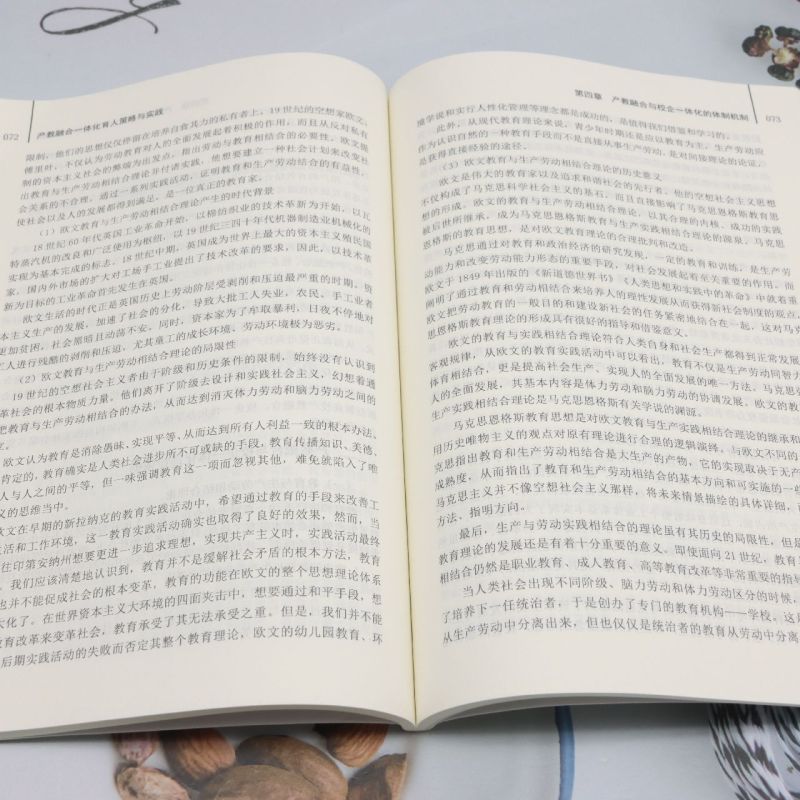 072 产教融合一体化育人策略与实践
限制，他们的思想仅仅停留在培养自食其力的私有者上；19世纪的空想家欧文、
傅里叶，不仅认为劳动教育对人的全面发展起着积极的作用，而且从反对私有
制的资本主义社会的弊端为出发点，指出劳动与教育相结合的必要性。欧文提
出教育与生产劳动相结合理论并付诸实践，他想要建立一种社会计划来改变社
会关系的不合理，通过一系列实践活动，证明教育和生产劳动结合的有益性，
使社会以及人的发展都得到满足，是一位真正的教育家。
（1）欧文教育与生产劳动相结合理论产生的时代背景
18世纪60年代英国工业革命开始，以棉纺织业的技术革新为开始，以瓦
特蒸汽机的改良和广泛使用为枢纽，以19世纪三四十年代机器制造业机械化的
实现为基本完成的标志。18世纪中期，英国成为世界上最大的资本主义殖民国
家，国内外市场的扩大对工场手工业提出了技术改革的要求，因此，以技术革
新为目标的工业革命首先发生在英国。
欧文生活的时代正是英国历史上劳动阶层受剥削和压迫最严重的时期。资
本主义生产的发展，加速了社会的分化，导致大批工人失业，农民、手工业者
更加贫困，社会黑暗且动荡不安，同时，资本家为了牟取暴利，日夜不停地对
工人进行残酷的剥削和压迫，尤其童工的成长环境、劳动环境极为恶劣。
（2）欧文教育与生产劳动相结合理论的局限性
19世纪的空想社会主义者由于阶级和历史条件的限制，始终没有认识到
革社会的根本物质力量。他们离开了阶级去设计和实践社会主义，幻想着通
把教育与生产劳动相结合的办法，从而达到消灭体力劳动和脑力劳动之间的
欧文认为教育是消除愚昧、实现平等、从而达到所有人利益一致的根本办法。
肯定的，教育确实是人类社会进步所不可或缺的手段，教育传播知识、美德、
人与人之间的平等，但一味强调教育这一项而忽视其他，难免就陷入了
义的思维当中。
欧文在早期的新拉纳克的教育实践活动中，希望通过教育的手段来改善工
生活和工作环境，这一教育实践活动确实也取得了良好的效果，然而，当
往印第安纳州想要更进一步追求理想，实现共产主义时，实践活动最终
我们应该清楚地认识到，教育并不是缓解社会矛盾的根本方法，教育
也并不能促成社会的根本变革，教育的功能在欧文的整个思想理论体系
大化了。在世界资本主义大环境的四面夹击中，想要通过和平手段，想
教育改革来变革社会，教育承受了其无法承受之重。但是，我们并不能
后期实践活动的失败而否定其整个教育理论，欧文的幼儿园教育、环
第四章 产教融合与校企一体化的体制机制 073
境学说和实行人性化管理等理念都是成功的，是值得我们借鉴和学习的。
此外，从现代教育理论来说，青少年时期还是应以教育为主，生产劳动应
作为认识自然的一种教育手段而不是直接从事生产劳动，是对间接理论的论证，
是获得直接经验的途径。
（3）欧文教育与生产劳动相结合理论的历史意义
欧文是伟大的教育家以及追求和谐社会的先行者，他的空想社会主义思想
不仅构成了马克思科学社会主义的基石，而且直接影响了马克思恩格斯教育思
想的形成。欧文的教育与生产劳动相结合理论，以其合理的内核、成功的实践
被后世所继承，成为马克思恩格斯教育与生产实践相结合理论的源泉，马克思
恩格斯的教育思想，是对欧文教育理论的合理批判和改造。
马克思通过对教育和政治经济的研究发现，一定的教育和训练，是生产劳
动能力和改变劳动能力形态的重要手段，对社会发展起着至关重要的作用。而
欧文于1849年出版的《新道德世界书》《人类思想和实践中的革命》中就着重
阐明了通过教育和劳动的结合来培养人的理性发展从而获得新社会制度的观点，
欧文把劳动教育的一般目的和建设新社会的任务紧密地结合在一起，这对马克
思恩格斯教育理论的形成具有很好的指导和借鉴意义。
欧文的教育与实践相结合理论符合人类自身和社会生产都得到正常发展
客观规律，从欧文的教育实践活动中可以看出，教育不仅是生产劳动同智力
体育相结合，更是提高社会生产、实现人的全面发展的唯一方法。马克思
人的全面发展，其基本内容是体力劳动和脑力劳动的协调发展。欧文的教
生产实践相结合理论是马克思恩格斯有关学说的渊源。
马克思恩格斯教育思想是对欧文教育与生产实践相结合理论的继承和
用历史唯物主义的观点对原有理论进行合理的逻辑演绎。与欧文不同的
克思指出教育和生产劳动相结合是大生产的产物，它的实现取决于无产
成熟度，从而指出了教育和生产劳动相结合的基本方向和可实施的一些
马克思主义并不像空想社会主义那样，将未来情景描绘的具体详细，而
方法，指明方向。
最后，生产与劳动实践相结合的理论虽有其历史的局限性，但是
教育理论的发展还是有着十分重要的意义。即使面向21世纪，教育
相结合仍然是职业教育、成人教育、高等教育改革等非常重要的指导
当人类社会出现不同阶级、脑力劳动和体力劳动区分的时候，
了培养下一任统治者，于是创办了专门的教育机构——学校。这
从生产劳动中分离出来，但也仅仅是统治者的教育从劳动中分离